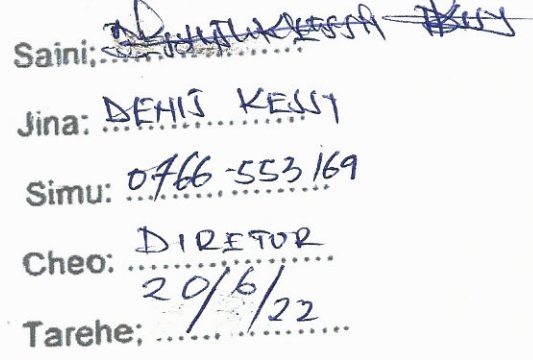 Saini;
Jina: DENIS KESSY
Simu: 0766-553169
Cheo: DIRETOR
Tarehe; 20/6/22